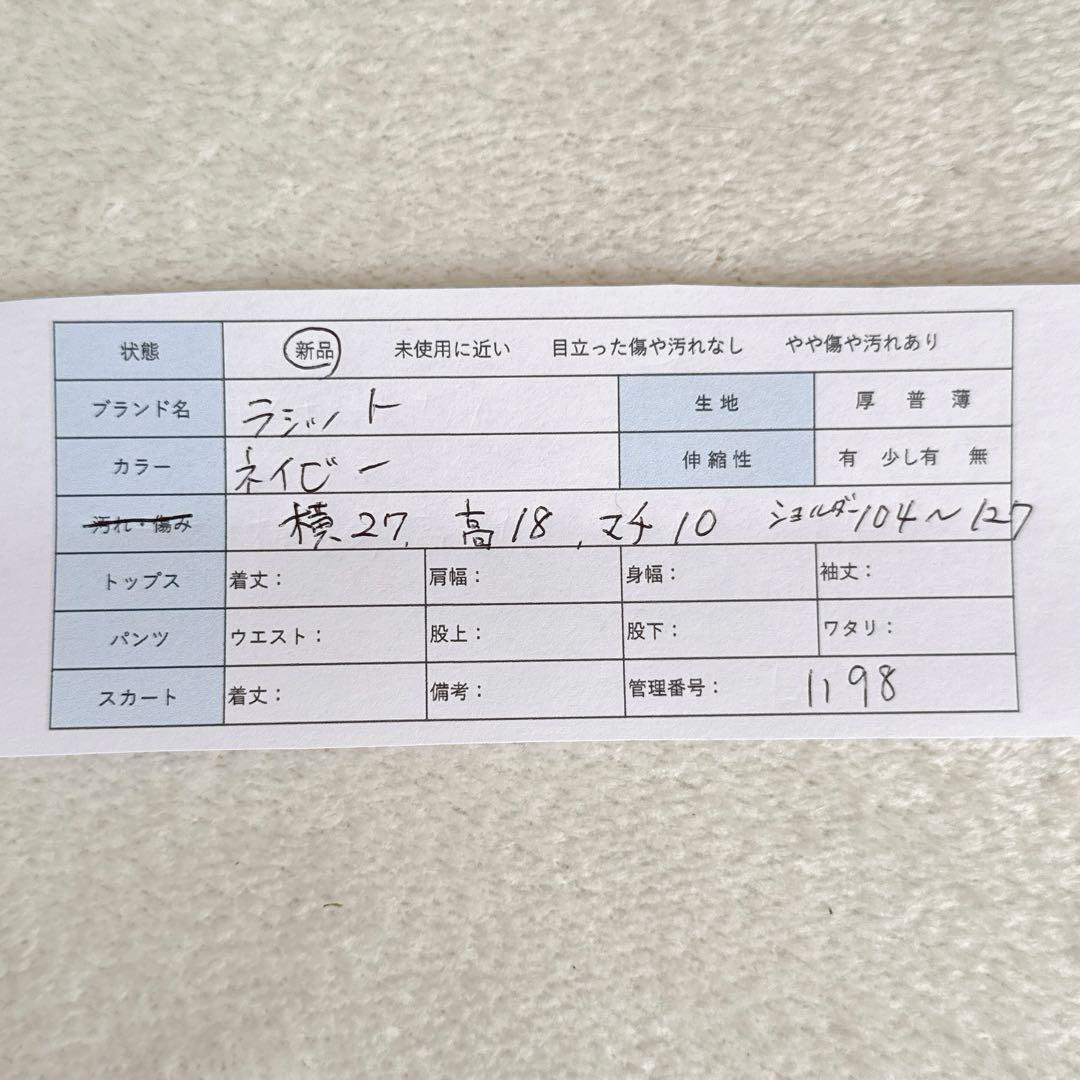 状態 新品 未使用に近い 目立った傷や汚れなし やや傷や汚れあり
ブランド名 ラシット 生地 厚 普 薄
カラー ネイビー 伸縮性 有 少し有 無
汚れ・傷み 横27, 高18, マチ10 ショルダー104～127
トップス 着丈： 肩幅： 身幅： 袖丈：
パンツ ウエスト： 股上： 股下： ワタリ：
スカート 着丈： 備考： 管理番号： 1198